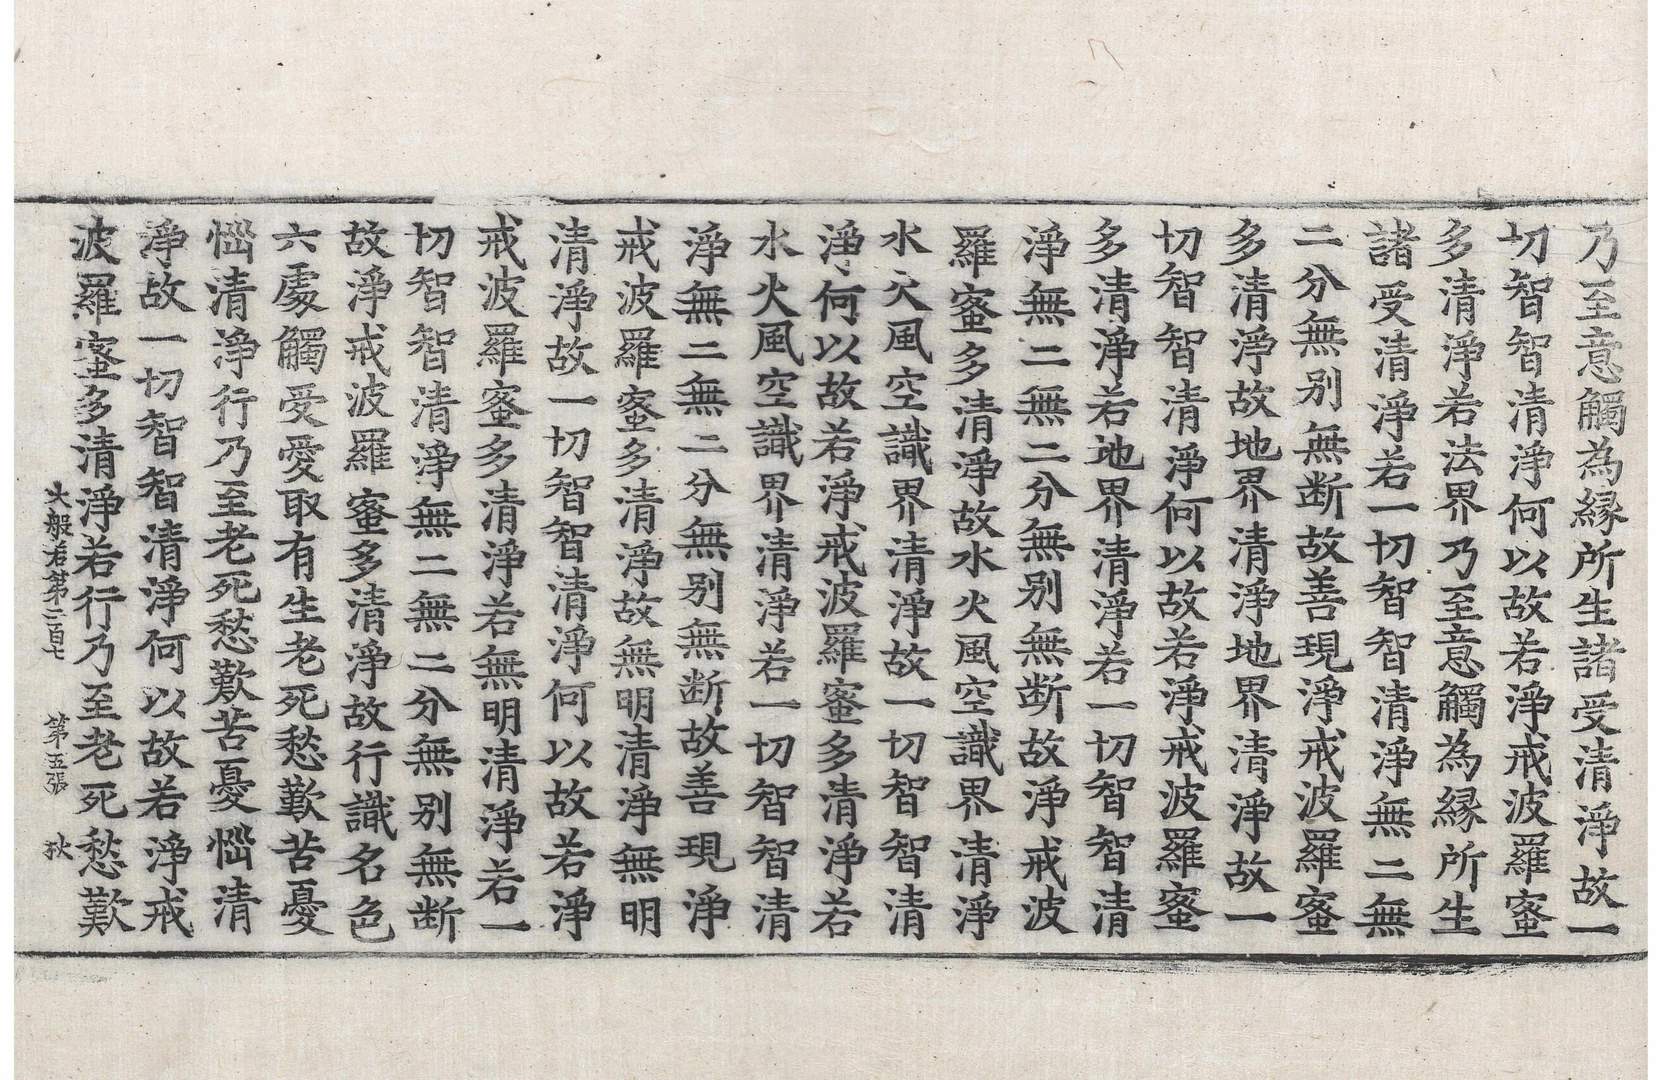 乃至意觸為緣所生諸受清淨故一
切智智清淨何以故若淨戒波羅蜜
多清淨若法界乃至意觸為緣所生
諸受清淨若一切智智清淨無二無
二分無別無断故善現淨戒波羅蜜
多清淨故地界清淨地界清淨故一
切智智清淨何以故若淨戒波羅蜜
多清淨若地界清淨若一切智智清
淨無二無二分無別無断故淨戒波
羅蜜多清淨故水火風空識界清淨
水火風空識界清淨故一切智智清
淨何以故若淨戒波羅蜜多清淨若
水火風空識界清淨若一切智智清
淨無二無二分無別無断故善現淨
戒波羅蜜多清淨故無明清淨無明
清淨故一切智智清淨何以故若淨
戒波羅蜜多清淨若無明清淨若一
切智智清淨無二無二分無別無断
故淨戒波羅蜜多清淨故行識名色
六處觸受愛取有生老死愁歎苦憂
惱清淨行乃至老死愁歎苦憂惱清
淨故一切智智清淨何以故若淨戒
波羅蜜多清淨若行乃至老死愁歎
大般若第二百七 第五張 狄